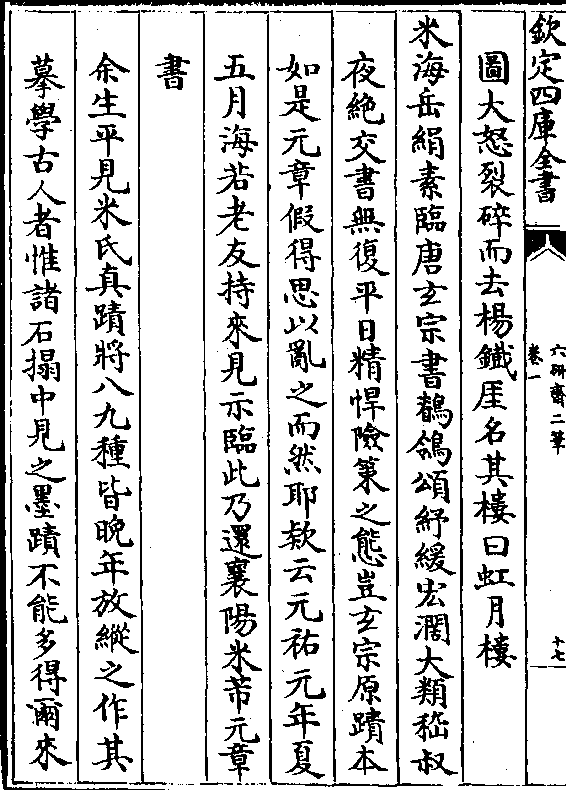 欽定四庫全書
六研齋二筆
卷一
十七
圖大怒裂碎而去楊鐡厓名其樓曰虹月樓
米海岳絹素臨唐玄宗書鶺鴒頌紓緩宏濶大類嵇叔
夜絶交書無復平日精悍險策之態豈玄宗原蹟本
如是元章假得思以亂之而然耶欵云元祐元年夏
五月海若老友持來見示臨此乃還襄陽米芾元章
書
余生平見米氏真蹟將八九種皆晩年放縱之作其
摹學古人者惟諸石搨中見之墨蹟不能多得爾來